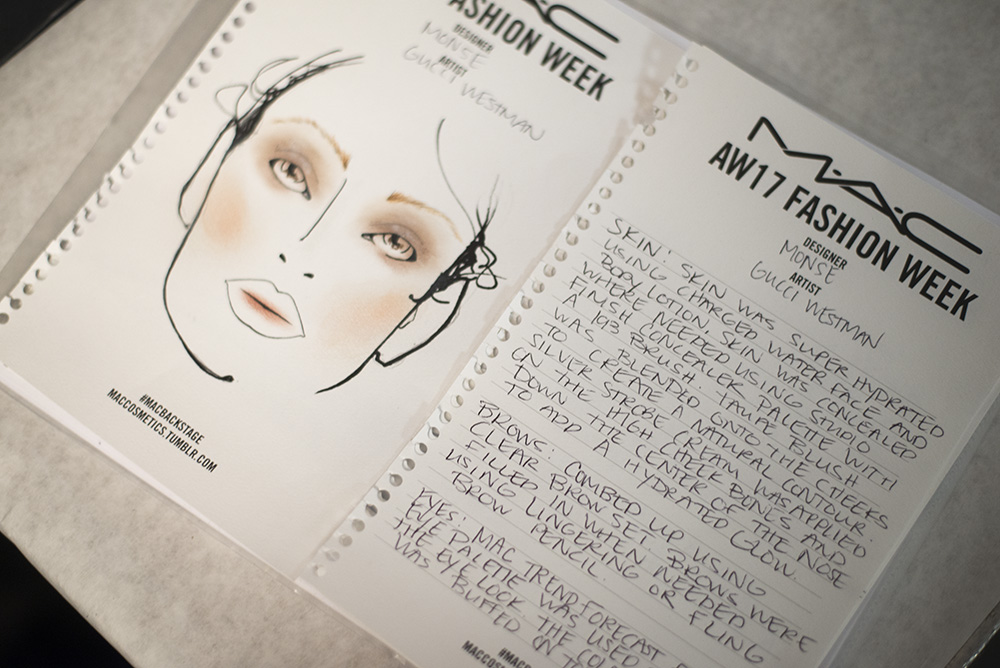 MAC
FASHION WEEK
DESIGNER
MONSE
ARTIST
GUCCI WESTMAN
#MACBACKSTAGE
MACCOSMETICS.TUMBLR.COM
MAC
AW17 FASHION WEEK
DESIGNER
MONSE
ARTIST
GUCCI WESTMAN
SKIN: SKIN WAS SUPER HYDRATED
USING CHARGED WATER FACE AND
BODY LOTION. SKIN WAS CONCEALED
WHERE NEEDED USING STUDIO
FINISH CONCEALER PALETTE WITH
A 193 BRUSH. TAUPE BLUSH
WAS BLENDED ONTO THE CHEEKS
TO CREATE A NATURAL CONTOUR.
SILVER STROBE CREAM WAS APPLIED
ON THE HIGH CHEEK BONES AND
DOWN THE CENTER OF THE NOSE
TO ADD A HYDRATED GLOW.
BROWS: COMBED UP USING
CLEAR BROW SET. BROWS WERE
FILLED IN WHEN NEEDED
USING LINGERING OR FLING
BROW PENCIL.
EYES: MAC TREND FORECAST
EYE PALETTE WAS USED
THE EYE LOOK. THE
WAS BUFFED ON